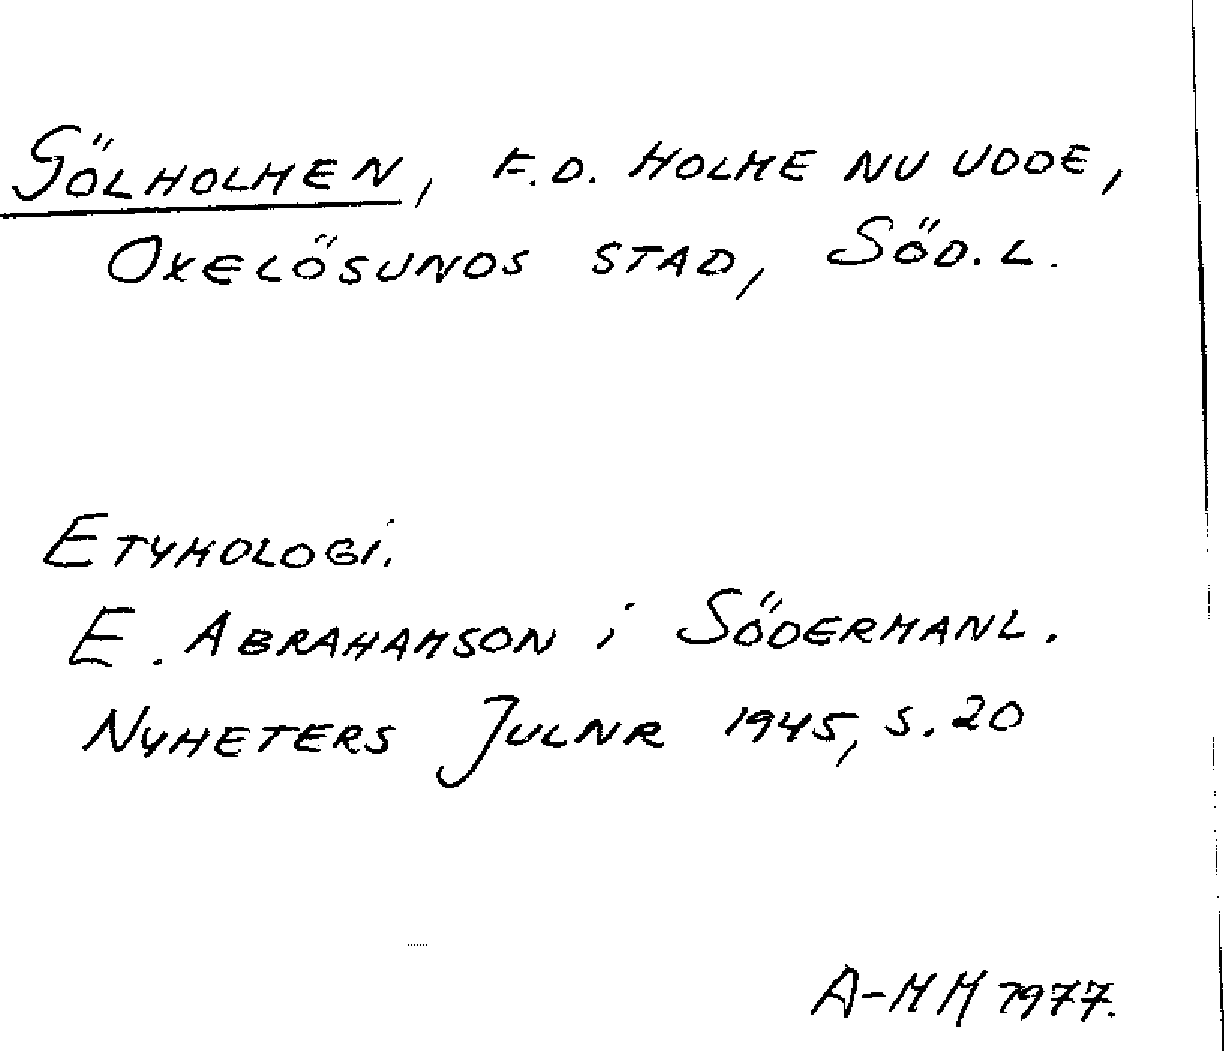 GÖLHOLMEN, F.D. HOLME NU UDDE,
OXELÖSUNDS STAD, SÖD.L.
ETYMOLOGI.
E. ABRAHAMSON i SÖDERMANL.
NYHETERS JULNR 1945, S. 20
A-MM 1977.